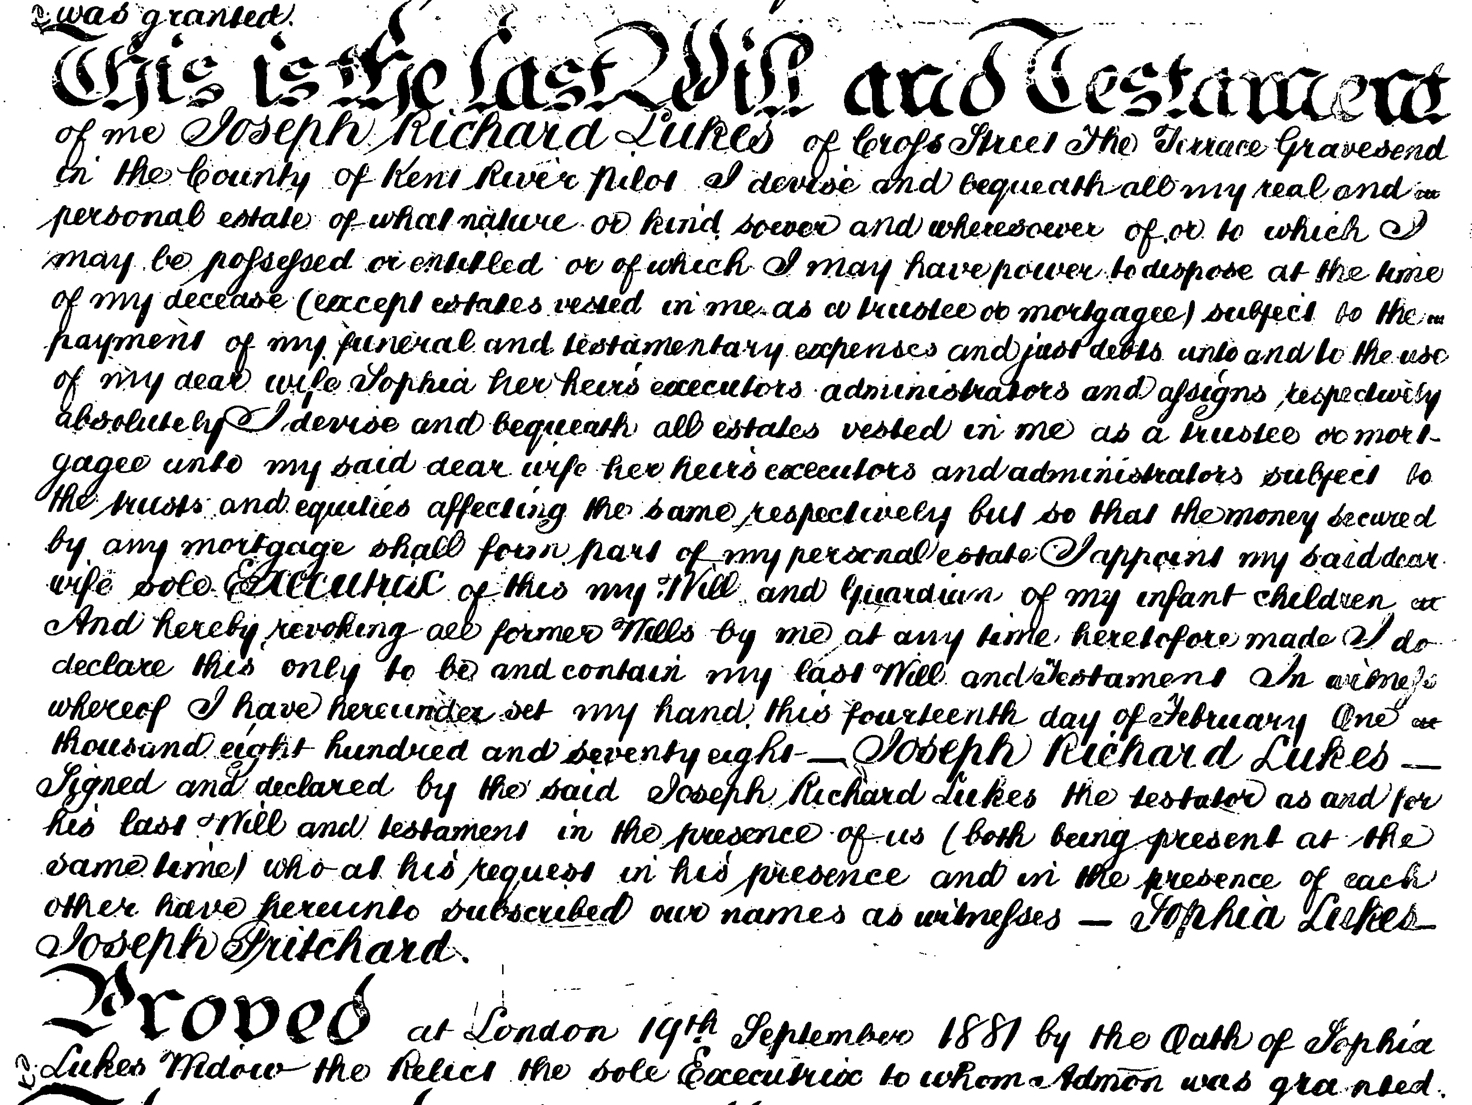 was granted.
This is the last Will and Testament
of me Joseph Richard Lukes of Cross Street The Terrace Gravesend
in the County of Kent River Pilot I devise and bequeath all my real and
personal estate of what nature or kind soever and wheresoever of or to which I
may be possessed or entitled or of which I may have power to dispose at the time
of my decease (except estates vested in me as a trustee or mortgagee) subject to the
payment of my funeral and testamentary expenses and just debts unto and to the use
of my dear wife Sophia her heirs executors administrators and assigns respectively
absolutely I devise and bequeath all estates vested in me as a trustee or mort-
gagee unto my said dear wife her heirs executors and administrators subject to
the trusts and equities affecting the same respectively but so that the money secured
by any mortgage shall form part of my personal estate I appoint my said dear
wife sole Executrix of this my Will and Guardian of my infant children
And hereby revoking all former Wills by me at any time heretofore made I do
declare this only to be and contain my last Will and Testament In witness
whereof I have hereunder set my hand this fourteenth day of February One
thousand eight hundred and seventy eight — Joseph Richard Lukes —
Signed and declared by the said Joseph Richard Lukes the testator as and for
his last Will and testament in the presence of us (both being present at the
same time) who at his request in his presence and in the presence of each
other have hereunto subscribed our names as witnesses — Sophia Lukes —
Joseph Pritchard.
Proved at London 19th September 1881 by the Oath of Sophia
Lukes Widow the Relict the sole Executrix to whom Admon was granted.